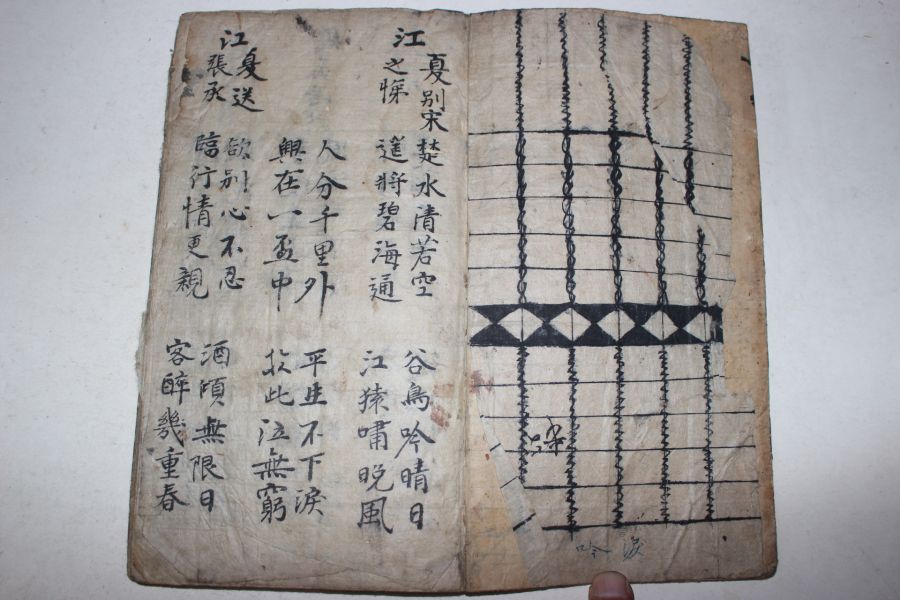 江夏別宋之悌
楚水清若空
遙將碧海通
人分千里外
興在一盃中
谷鳥吟晴日
江猿嘯晚風
平生不下淚
於此泣無窮
江夏送張承
欲別心不忍
臨行情更親
酒頃無限日
客醉幾重春
吟淚